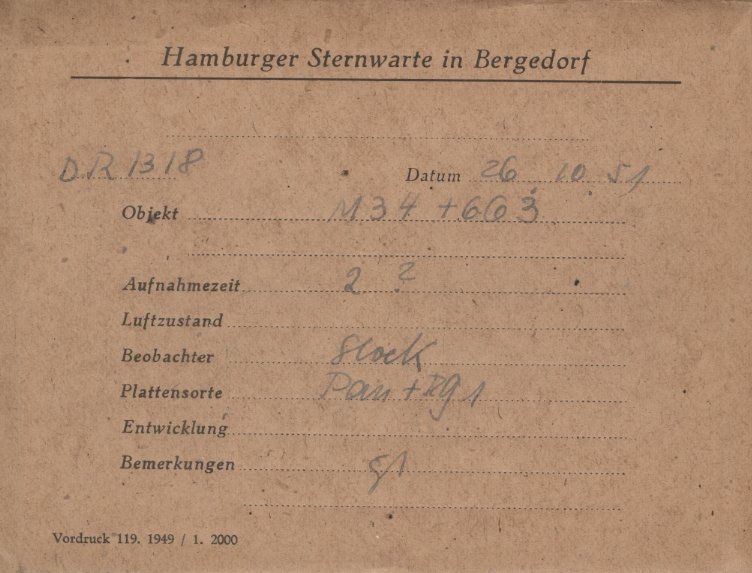 Hamburger Sternwarte in Bergedorf
DR 1318 Datum 26. 10. 51
Objekt M 34 + 663
Aufnahmezeit 2 ?
Luftzustand
Beobachter Stock
Plattensorte Pan + Rg 1
Entwicklung
Bemerkungen
Vordruck 119. 1949 / 1. 2000